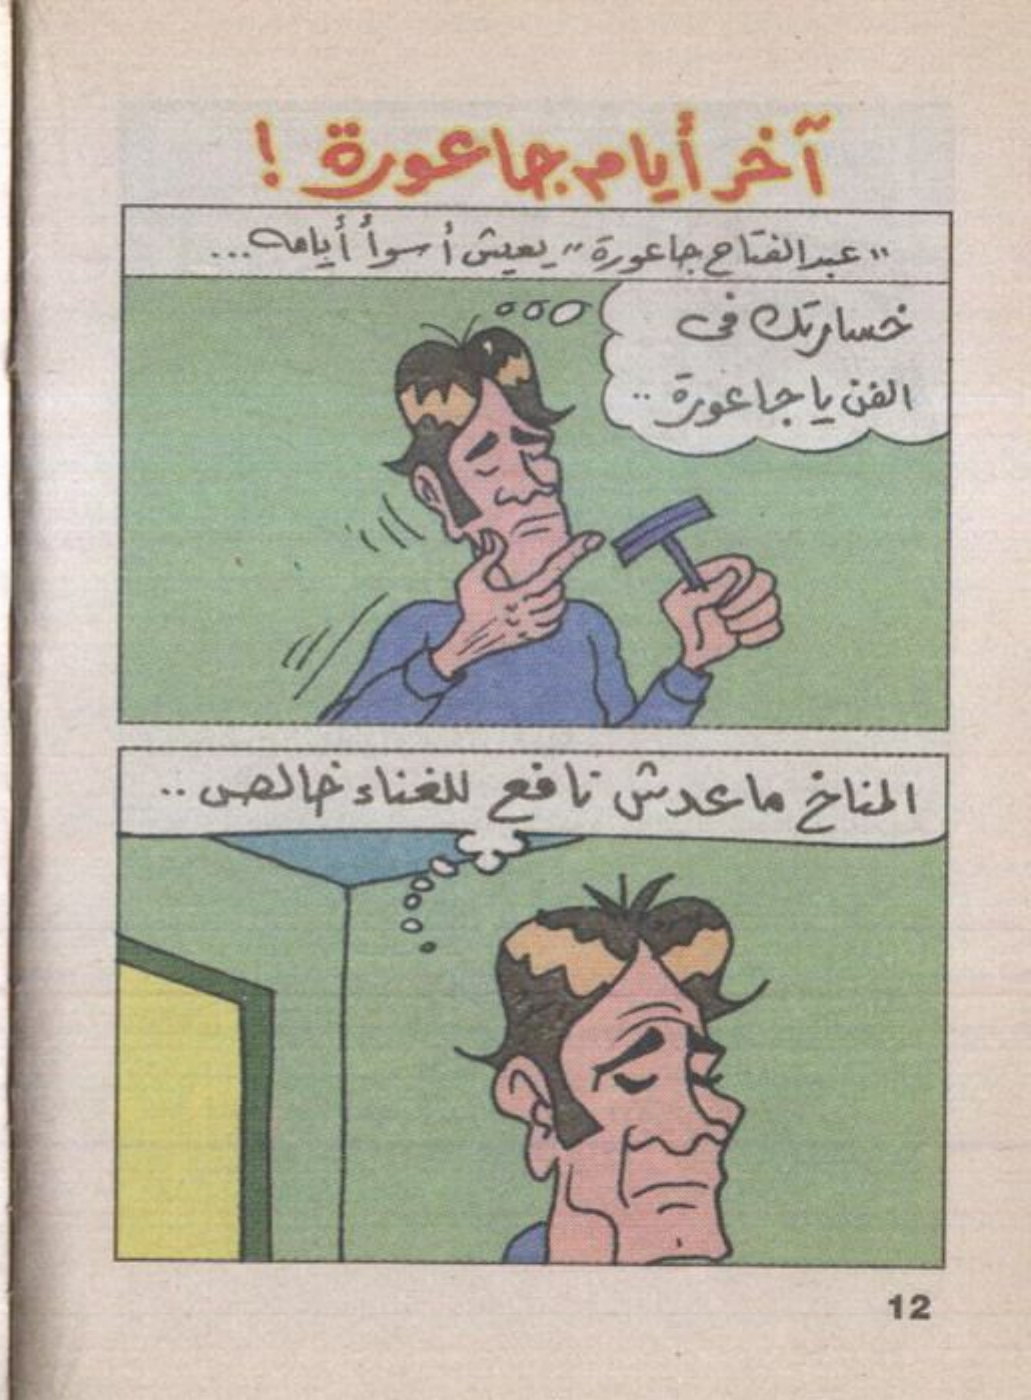 آخر أيام جاعورة !
"عبدالفتاح جاعورة" يعيش أسوأ أيامه...
خسارتك فى
الفن يا جاعورة ..
المناخ ماعدش نافع للغناء خالص ..
12